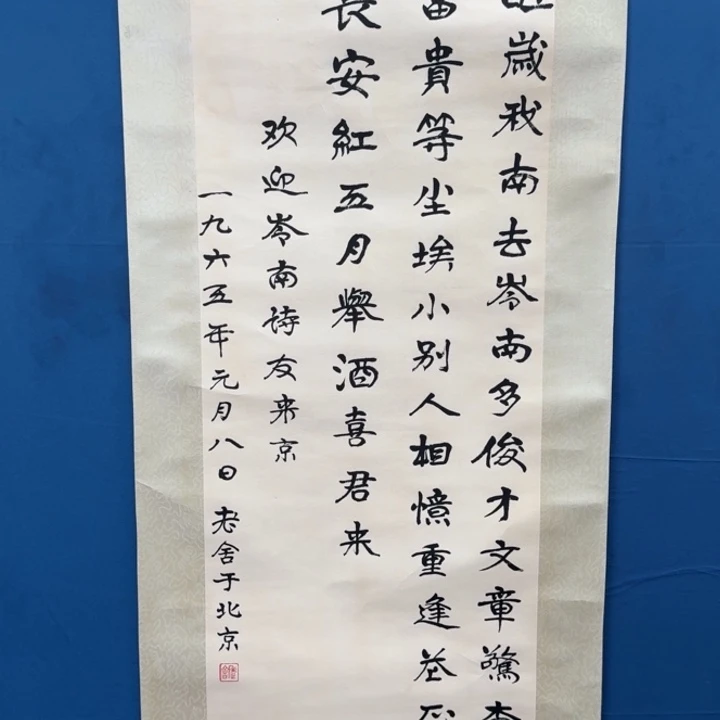 歲我南去岑南多俊才文章驚
富貴等尘埃小别人相憶重逢花
長安紅五月舉酒喜君来
欢迎岑南诗友来京
一九六五年元月八日 老舍于北京